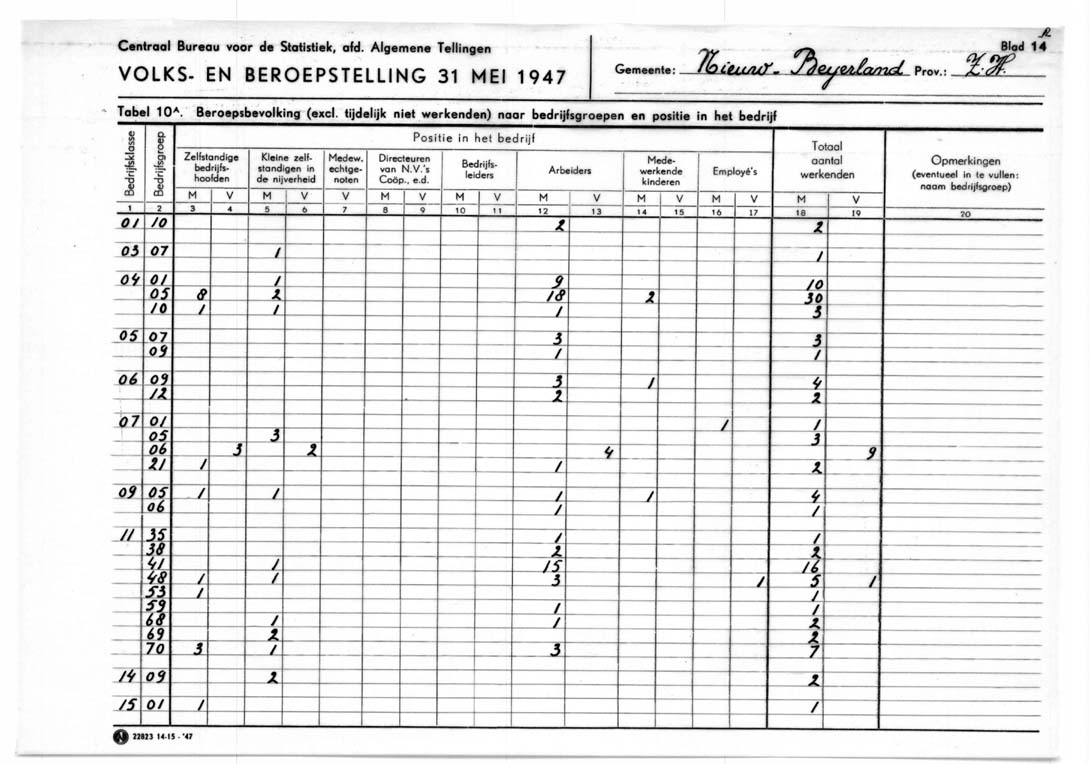 R
Blad 14
Centraal Bureau voor de Statistiek, afd. Algemene Tellingen
VOLKS- EN BEROEPSTELLING 31 MEI 1947
Gemeente: Nieuw-Beyerland Prov.: Z.H.
Tabel 10A. Beroepsbevolking (excl. tijdelijk niet werkenden) naar bedrijfsgroepen en positie in het bedrijf
Bedrijfsklasse
Bedrijfsgroep
Positie in het bedrijf
Zelfstandige bedrijfs-hoofden
Kleine zelf-standigen in de nijverheid
Medew. echtge-noten
Directeuren van N.V.'s Coöp., e.d.
Bedrijfs-leiders
Arbeiders
Mede-werkende kinderen
Employé's
Totaal aantal werkenden
Opmerkingen (eventueel in te vullen: naam bedrijfsgroep)
M V M V V M V M V M V M V M V M V
1 2 3 4 5 6 7 8 9 10 11 12 13 14 15 16 17 18 19 20
01 10 2 2
03 07 1 1
04 01 1 9 10
05 8 2 18 2 30
10 1 1 1 3
05 07 3 3
09 1 1
06 09 3 1 4
12 2 2
07 01 1 1
05 3 3
06 3 2 4 9
21 1 1 2
09 05 1 1 1 1 4
06 1 1
11 35 1 1
38 2 2
41 1 15 16
48 1 1 3 1 5 1
53 1 1
59 1 1
68 1 1 2
69 2 2
70 3 1 3 7
14 09 2 2
15 01 1 1
N 22823 14-15-'47